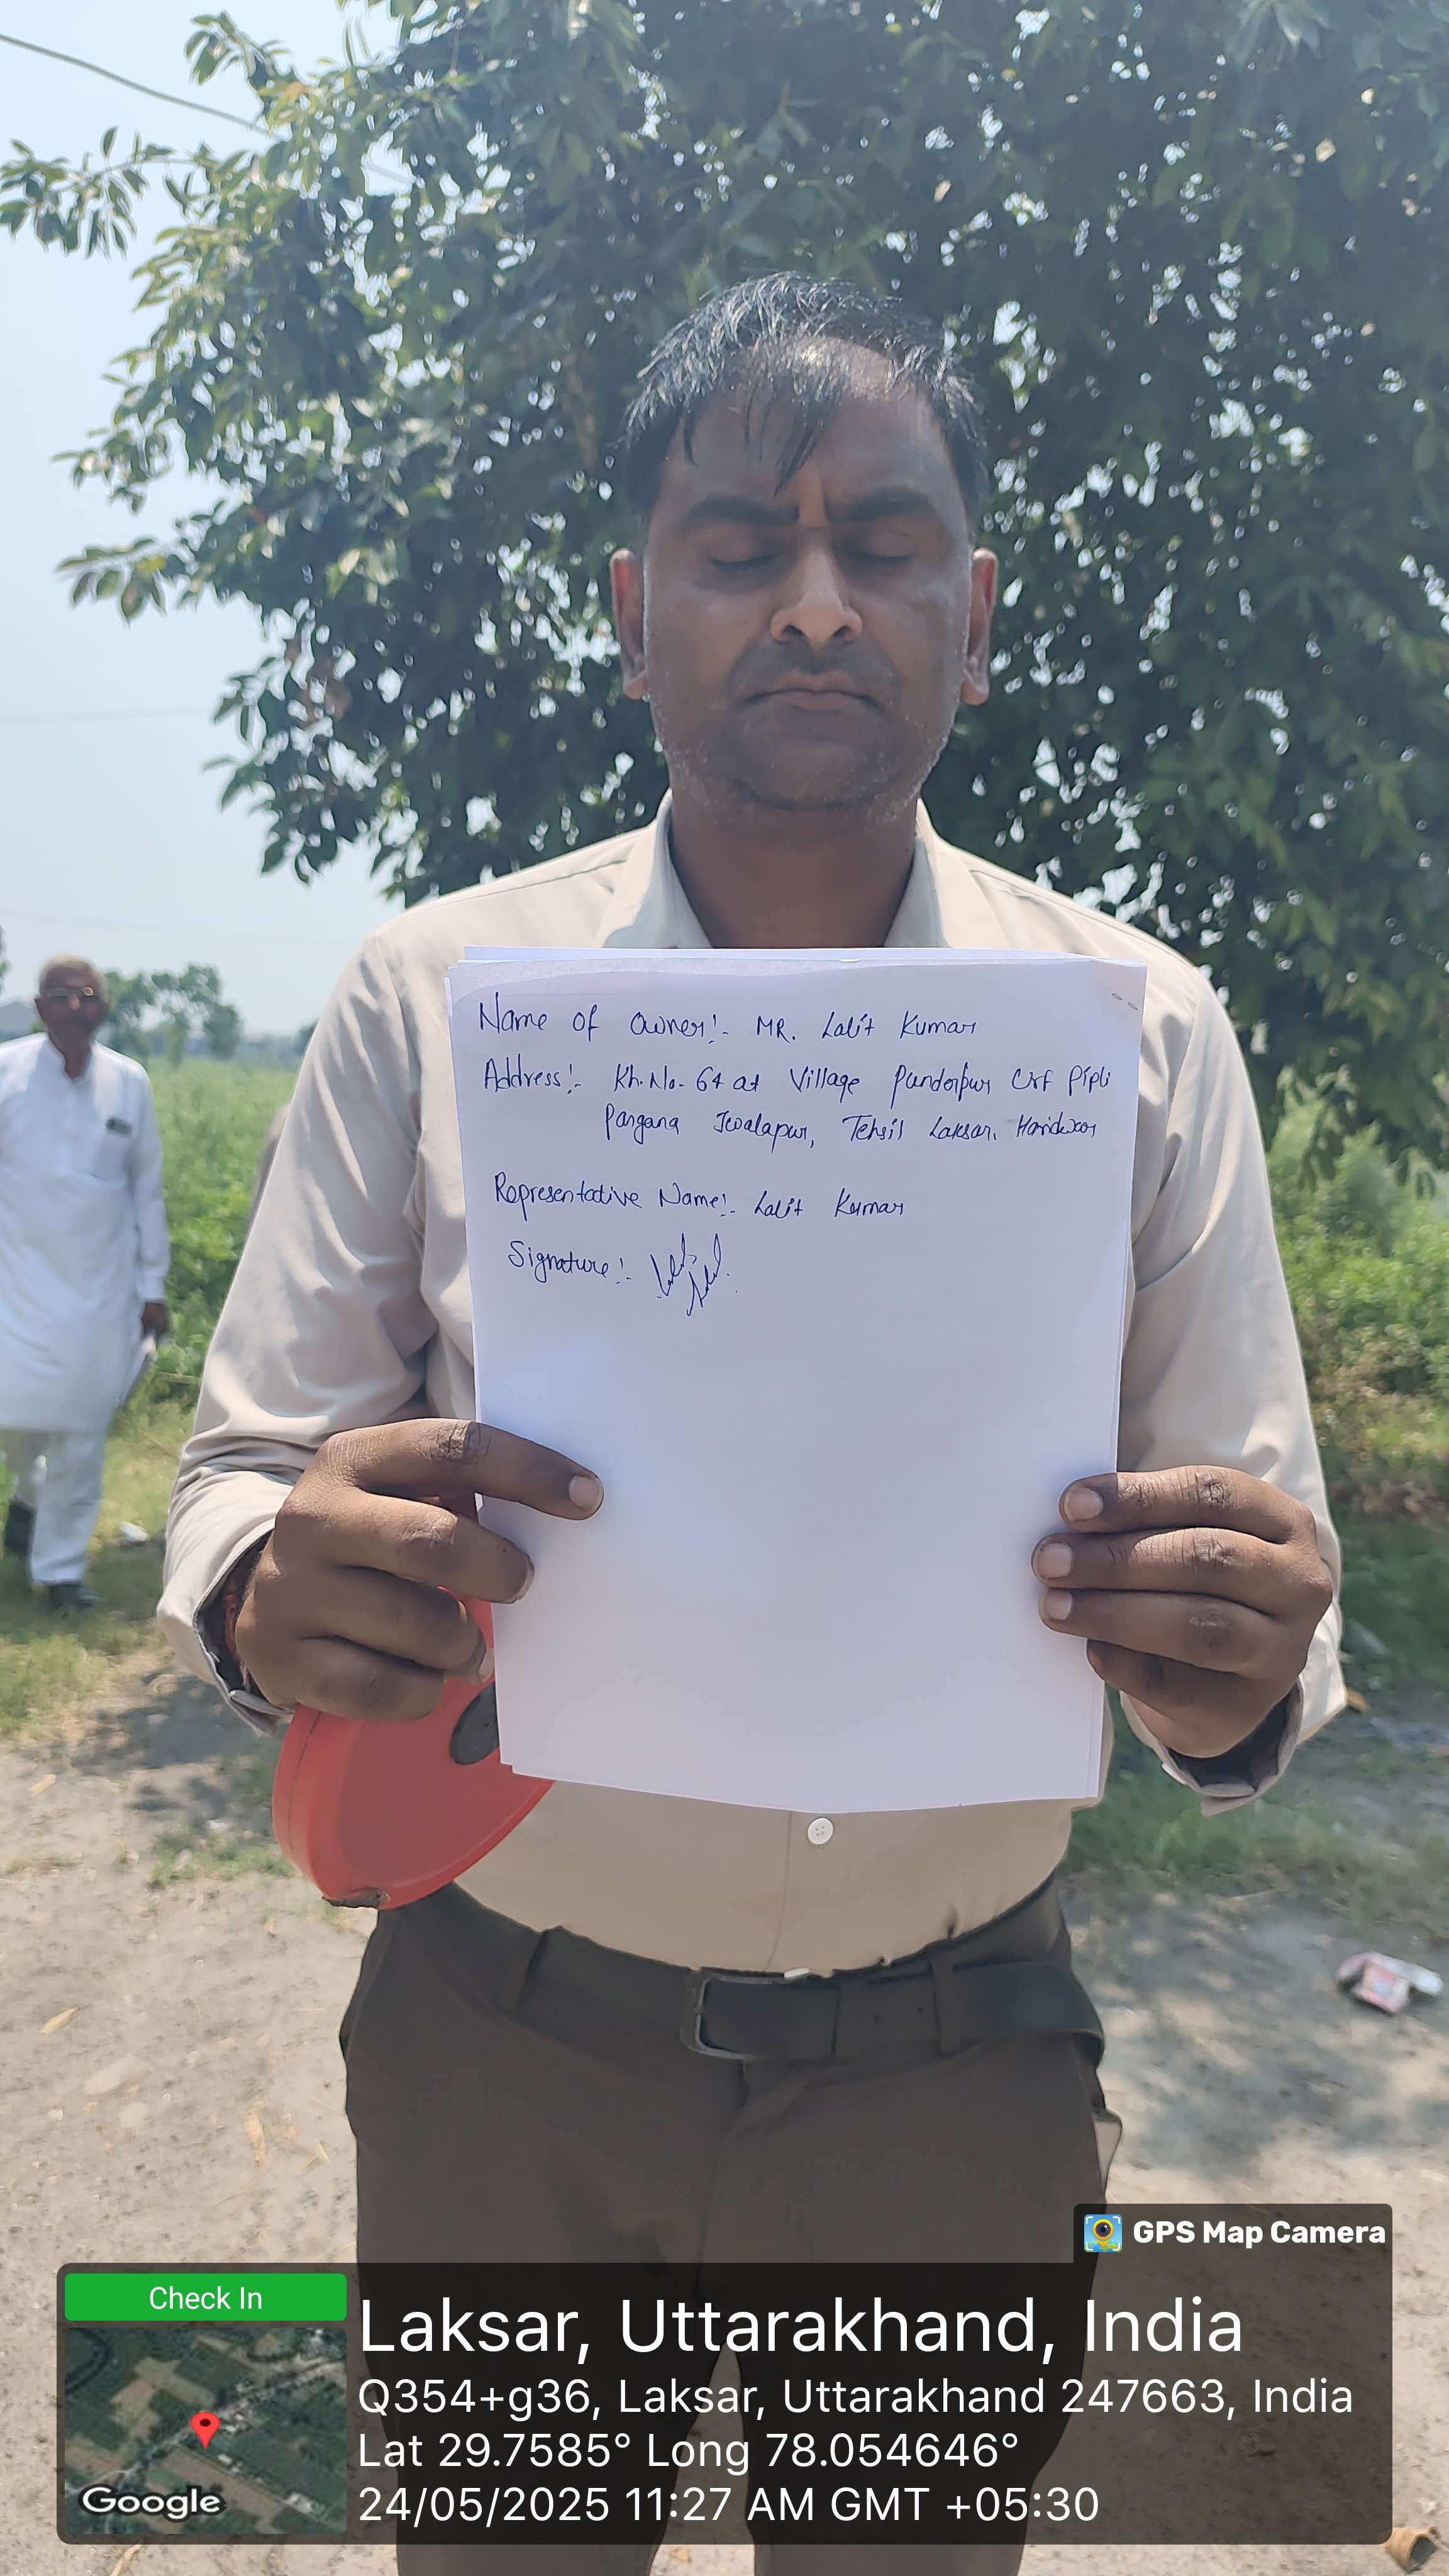 Name of Owner:- MR. Lalit Kumar
Address:- Kh. No- 64 at Village Panderpur Urf Pipli
Pargana Jwalapur, Tehsil Laksar, Haridwar
Representative Name:- Lalit Kumar
Signature:-
GPS Map Camera
Check In
Google
Laksar, Uttarakhand, India
Q354+g36, Laksar, Uttarakhand 247663, India
Lat 29.7585° Long 78.054646°
24/05/2025 11:27 AM GMT +05:30